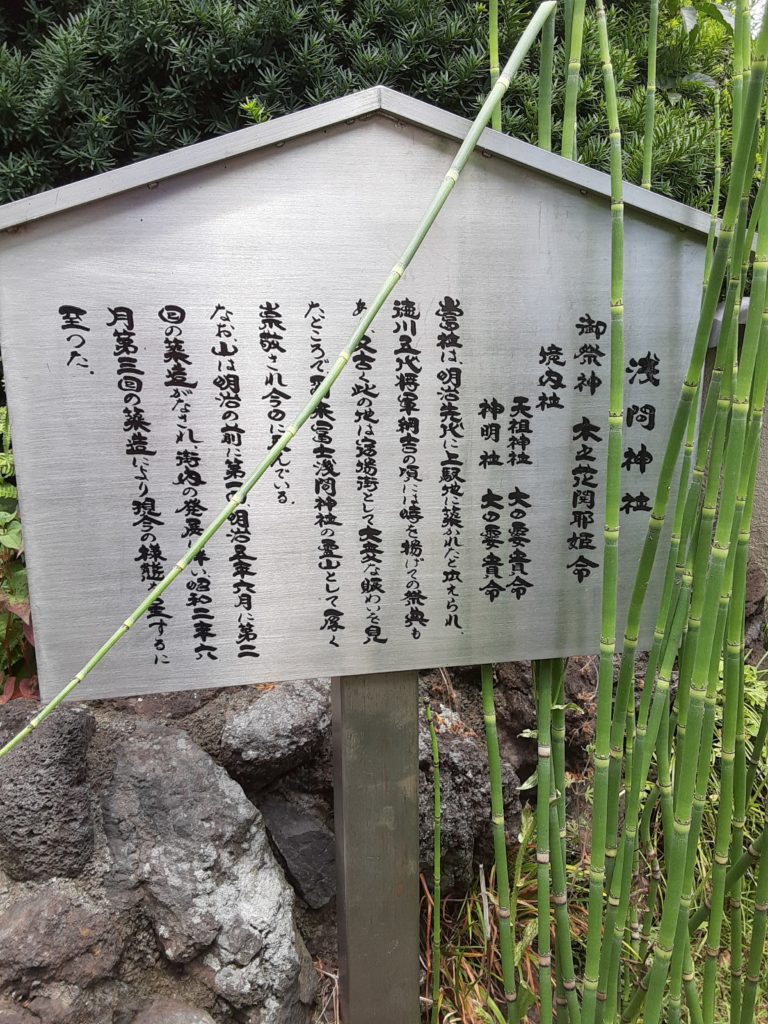 浅間神社
御祭神 木之花開耶姫命
境内社
天祖神社 大日孁貴命
神明社 大日孁貴命
当社は、明治先代に上駅地に築かれたと伝えられ、
徳川五代将軍綱吉の頃には時を揚げての祭典も
あ、又古く此の地は宿場街として大変な賑わいを見
たところで 来富士浅間神社の霊山として厚く
崇敬され今日に及んでいる。
なお、山は明治の前に第一回明治五年六月に第二
回の築造がなされ街内の発展に伴い昭和二年六
月第三回の築造により現今の様態 至するに
至つた。